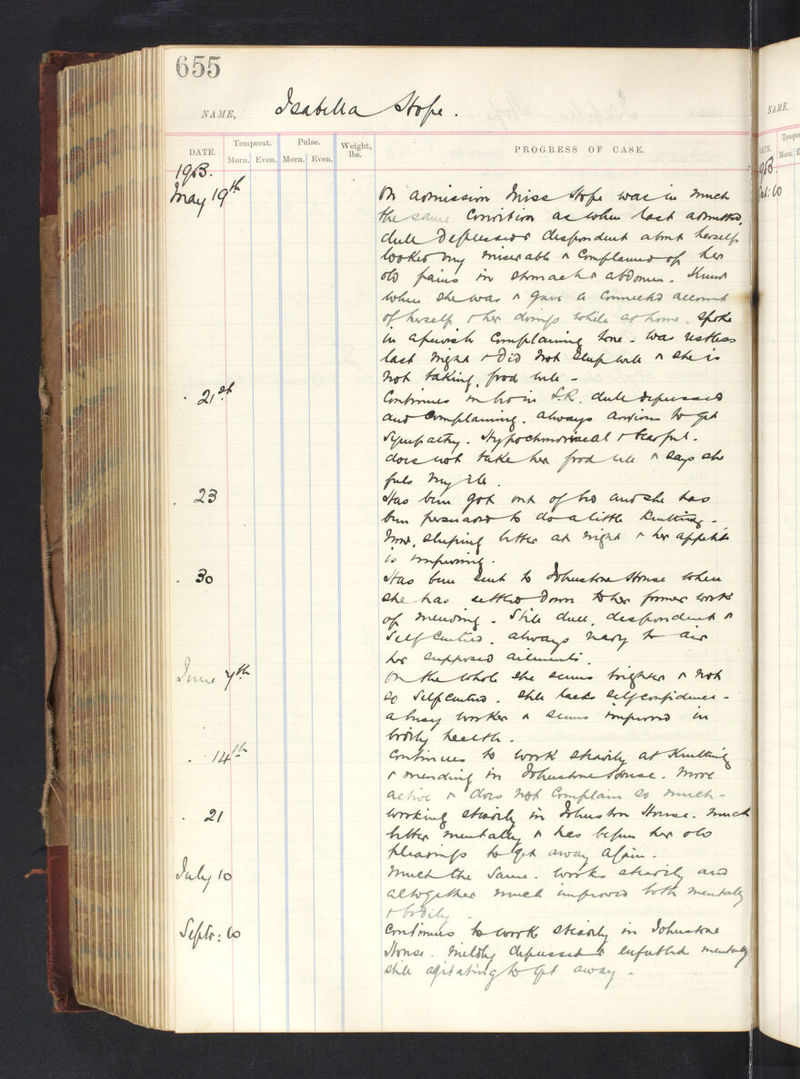 655
NAME, Isabella Hope.
DATE. Temperat. Morn. Even. Pulse. Morn. Even. Weight, lbs. PROGRESS OF CASE.
1903.
May 19th On admission Miss Hope was in much
the same condition as when last admitted,
dull depressed & despondent about herself
looked very miserable & complained of her
old pains in stomach & abdomen. Knew
where she was & gave a connected account
of herself & her doings while at home. Spoke
in a peevish complaining tone - was restless
last night & did not sleep well & she is
not taking food well -
21st Continues in bed in S.R. dull depressed
and complaining. always anxious to get
sympathy. Hypochondriacal & tearful.
does not take her food well & says she
feels very ill.
23 Has been got out of bed and she has
been persuaded to do a little knitting -
Now, sleeping better at night & her appetite
is improving.
30 Has been sent to Johnstone House where
she has settled down to her former work
of mending - Still dull, despondent &
self centred. always ready to air
her supposed ailments.
June 7th On the whole she seems brighter & not
so self centred. Still lacks self confidence -
a busy worker & seems improved in
bodily health.
14th Continues to work steadily at knitting
& mending in Johnstone House. More
active & does not complain so much -
21 Working steadily in Johnston House. Much
better mentally & has begun her old
pleadings to get away again.
July 10 Much the same. Works steadily and
altogether much improved both mentally
& bodily.
Septr: 10 Continues to work steadily in Johnstone
House. Mildly depressed & enfeebled mentally
still agitating to get away -
NAME.
DATE. Morn.